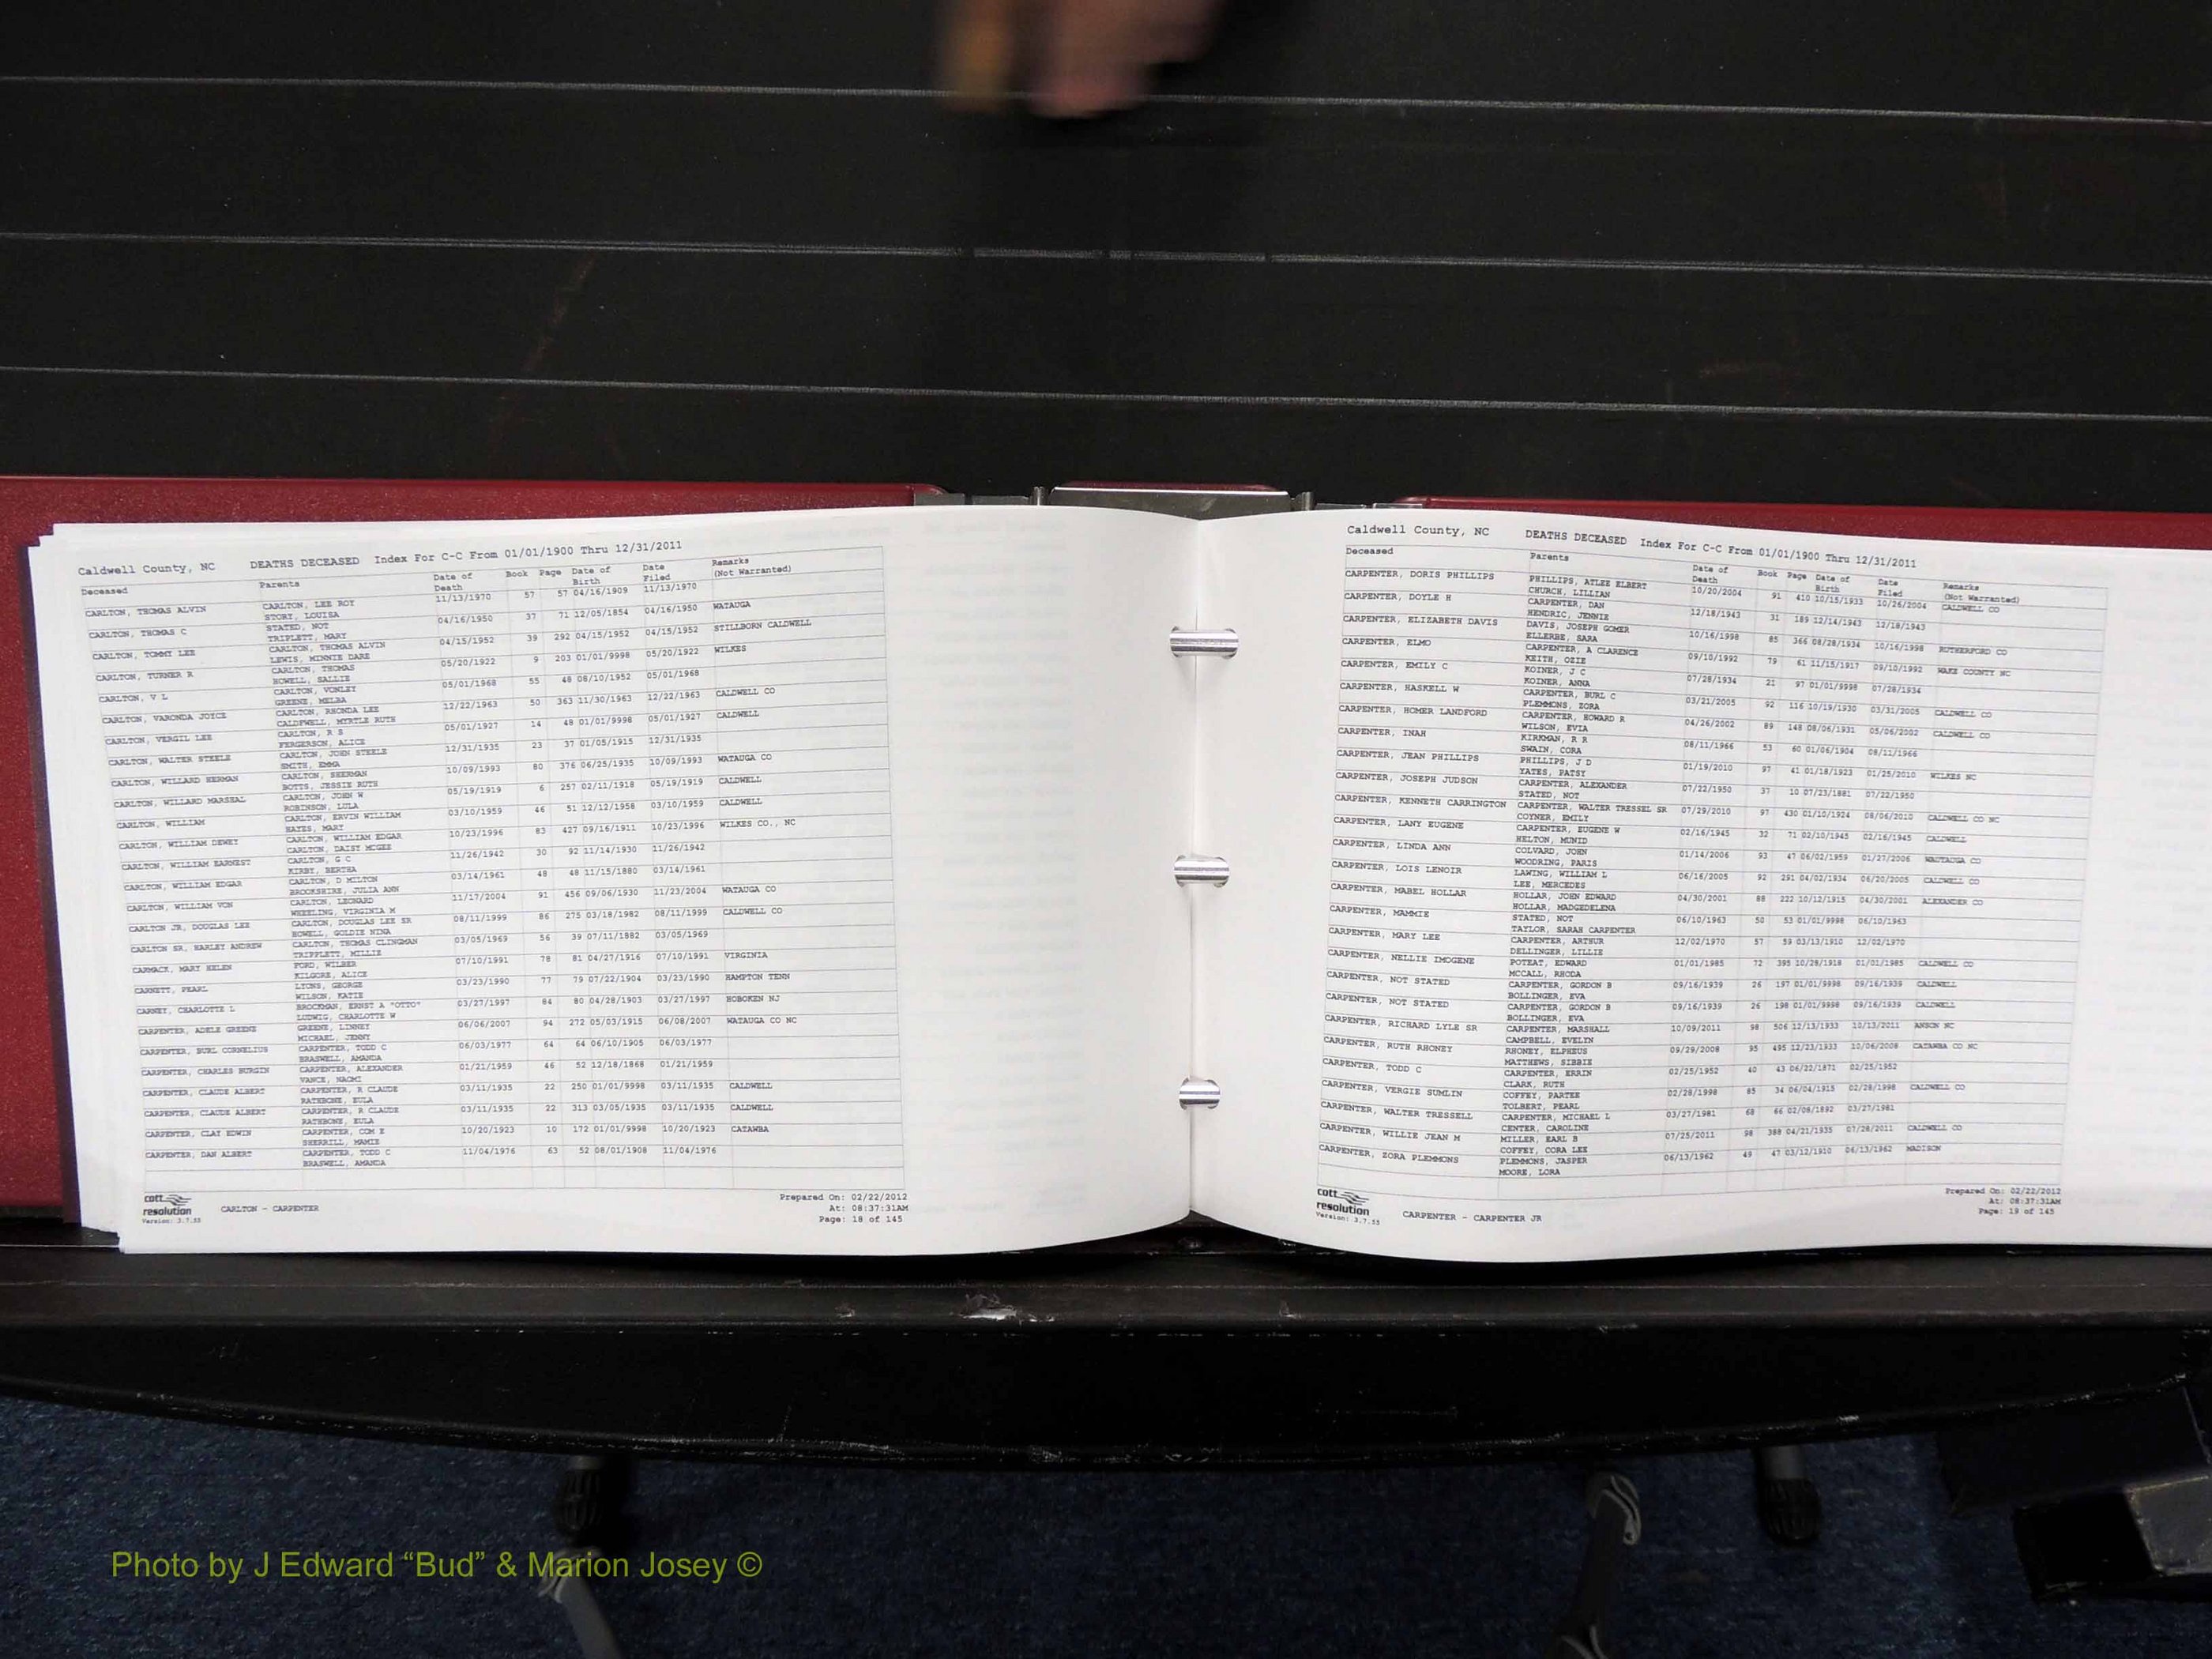 Caldwell County, NC DEATHS DECEASED Index For C-C From 01/01/1900 Thru 12/31/2011
Deceased Parents Date of Death Book Page Date of Birth Date Filed Remarks (Not Warranted)
CARLTON, THOMAS ALVIN CARLTON, LEE ROY 11/13/1970 57 57 04/16/1909 11/13/1970
STORY, LOUISA
CARLTON, THOMAS C STATED, NOT 04/16/1950 37 71 12/05/1854 04/16/1950 WATAUGA
TRIPLETT, MARY
CARLTON, TOMMY LEE CARLTON, THOMAS ALVIN 04/15/1952 39 292 04/15/1952 04/15/1952 STILLBORN CALDWELL
LEWIS, MINNIE DARE
CARLTON, TURNER R CARLTON, THOMAS 05/20/1922 9 203 01/01/9998 05/20/1922 WILKES
HOWELL, SALLIE
CARLTON, V L CARLTON, VONLEY 05/01/1968 55 48 08/10/1952 05/01/1968
GREENE, MELBA
CARLTON, VARONDA JOYCE CARLTON, RHONDA LEE 12/22/1963 50 363 11/30/1963 12/22/1963 CALDWELL CO
CALDFWELL, MYRTLE RUTH
CARLTON, VERGIL LEE CARLTON, R S 05/01/1927 14 48 01/01/9998 05/01/1927 CALDWELL
FERGERSON, ALICE
CARLTON, WALTER STEELE CARLTON, JOHN STEELE 12/31/1935 23 37 01/05/1915 12/31/1935
SMITH, EMMA
CARLTON, WILLARD HERMAN CARLTON, SHERMAN 10/09/1993 80 376 06/25/1935 10/09/1993 WATAUGA CO
BOTTS, JESSIE RUTH
CARLTON, WILLARD MARSHAL CARLTON, JOHN W 05/19/1919 6 257 02/11/1918 05/19/1919 CALDWELL
ROBINSON, LULA
CARLTON, WILLIAM CARLTON, ERVIN WILLIAM 03/10/1959 46 51 12/12/1958 03/10/1959 CALDWELL
HAYES, MARY
CARLTON, WILLIAM DEWEY CARLTON, WILLIAM EDGAR 10/23/1996 83 427 09/16/1911 10/23/1996 WILKES CO., NC
CARLTON, DAISY MCGEE
CARLTON, WILLIAM EARNEST CARLTON, G C 11/26/1942 30 92 11/14/1930 11/26/1942
KIRBY, BERTHA
CARLTON, WILLIAM EDGAR CARLTON, D MILTON 03/14/1961 48 48 11/15/1880 03/14/1961
BROOKSHIRE, JULIA ANN
CARLTON, WILLIAM VON CARLTON, LEONARD 11/17/2004 91 456 09/06/1930 11/23/2004 WATAUGA CO
WHEELING, VIRGINIA M
CARLTON JR, DOUGLAS LEE CARLTON, DOUGLAS LEE SR 08/11/1999 86 275 03/18/1982 08/11/1999 CALDWELL CO
HOWELL, GOLDIE NINA
CARLTON SR, HARLEY ANDREW CARLTON, THOMAS CLINGMAN 03/05/1969 56 39 07/11/1882 03/05/1969
TRIPPLETT, MILLIE
CARMACK, MARY HELEN FORD, WILBER 07/10/1991 78 81 04/27/1916 07/10/1991 VIRGINIA
KILGORE, ALICE
CARNETT, PEARL LYONS, GEORGE 03/23/1990 77 79 07/22/1904 03/23/1990 HAMPTON TENN
WILSON, KATIE
CARNEY, CHARLOTTE L BROCKMAN, ERNST A "OTTO" 03/27/1997 84 80 04/28/1903 03/27/1997 HOBOKEN NJ
LUDWIG, CHARLOTTE W
CARPENTER, ADELE GREENE GREENE, LINNEY 06/06/2007 94 272 05/03/1915 06/08/2007 WATAUGA CO NC
MICHAEL, JENNY
CARPENTER, BURL CORNELIUS CARPENTER, TODD C 06/03/1977 64 64 06/10/1905 06/03/1977
BRASWELL, AMANDA
CARPENTER, CHARLES BURGIN CARPENTER, ALEXANDER 01/21/1959 46 52 12/18/1868 01/21/1959
VANCE, NAOMI
CARPENTER, CLAUDE ALBERT CARPENTER, R CLAUDE 03/11/1935 22 250 01/01/9998 03/11/1935 CALDWELL
RATHBONE, EULA
CARPENTER, CLAUDE ALBERT CARPENTER, R CLAUDE 03/11/1935 22 313 03/05/1935 03/11/1935 CALDWELL
RATHBONE, EULA
CARPENTER, CLAY EDWIN CARPENTER, COM E 10/20/1923 10 172 01/01/9998 10/20/1923 CATAWBA
SHERRILL, MAMIE
CARPENTER, DAN ALBERT CARPENTER, TODD C 11/04/1976 63 52 08/01/1908 11/04/1976
BRASWELL, AMANDA
cott resolution
Version: 3.7.55
CARLTON - CARPENTER
Prepared On: 02/22/2012
At: 08:37:31AM
Page: 18 of 145
Caldwell County, NC DEATHS DECEASED Index For C-C From 01/01/1900 Thru 12/31/2011
Deceased Parents Date of Death Book Page Date of Birth Date Filed Remarks (Not Warranted)
CARPENTER, DORIS PHILLIPS PHILLIPS, ATLEE ELBERT 10/20/2004 91 410 10/15/1933 10/26/2004 CALDWELL CO
CHURCH, LILLIAN
CARPENTER, DOYLE H CARPENTER, DAN 12/18/1943 31 189 12/14/1943 12/18/1943
HENDRIC, JENNIE
CARPENTER, ELIZABETH DAVIS DAVIS, JOSEPH GOMER 10/16/1998 85 366 08/28/1934 10/16/1998 RUTHERFORD CO
ELLERBE, SARA
CARPENTER, ELMO CARPENTER, A CLARENCE 09/10/1992 79 61 11/15/1917 09/10/1992 WAKE COUNTY NC
KEITH, OZIE
CARPENTER, EMILY C KOINER, J C 07/28/1934 21 97 01/01/9998 07/28/1934
KOINER, ANNA
CARPENTER, HASKELL W CARPENTER, BURL C 03/21/2005 92 116 10/19/1930 03/31/2005 CALDWELL CO
PLEMMONS, ZORA
CARPENTER, HOMER LANDFORD CARPENTER, HOWARD R 04/26/2002 89 148 08/06/1931 05/06/2002 CALDWELL CO
WILSON, EVIA
CARPENTER, INAH KIRKMAN, R R 08/11/1966 53 60 01/06/1904 08/11/1966
SWAIN, CORA
CARPENTER, JEAN PHILLIPS PHILLIPS, J D 01/19/2010 97 41 01/18/1923 01/25/2010 WILKES NC
YATES, PATSY
CARPENTER, JOSEPH JUDSON CARPENTER, ALEXANDER 07/22/1950 37 10 07/23/1881 07/22/1950
STATED, NOT
CARPENTER, KENNETH CARRINGTON CARPENTER, WALTER TRESSEL SR 07/29/2010 97 430 01/10/1924 08/06/2010 CALDWELL CO NC
COYNER, EMILY
CARPENTER, LANY EUGENE CARPENTER, EUGENE W 02/16/1945 32 71 02/10/1945 02/16/1945 CALDWELL
HELTON, MUNID
CARPENTER, LINDA ANN COLVARD, JOHN 01/14/2006 93 47 06/02/1959 01/27/2006 WAUTAUGA CO
WOODRING, PARIS
CARPENTER, LOIS LENOIR LAWING, WILLIAM L 06/16/2005 92 291 04/02/1934 06/20/2005 CALDWELL CO
LEE, MERCEDES
CARPENTER, MABEL HOLLAR HOLLAR, JOHN EDWARD 04/30/2001 88 222 10/12/1915 04/30/2001 ALEXANDER CO
HOLLAR, MADGEDELENA
CARPENTER, MAMMIE STATED, NOT 06/10/1963 50 53 01/01/9998 06/10/1963
TAYLOR, SARAH CARPENTER
CARPENTER, MARY LEE CARPENTER, ARTHUR 12/02/1970 57 59 03/13/1910 12/02/1970
DELLINGER, LILLIE
CARPENTER, NELLIE IMOGENE POTEAT, EDWARD 01/01/1985 72 395 10/28/1918 01/01/1985 CALDWELL CO
MCCALL, RHODA
CARPENTER, NOT STATED CARPENTER, GORDON B 09/16/1939 26 197 01/01/9998 09/16/1939 CALDWELL
BOLLINGER, EVA
CARPENTER, NOT STATED CARPENTER, GORDON B 09/16/1939 26 198 01/01/9998 09/16/1939 CALDWELL
BOLLINGER, EVA
CARPENTER, RICHARD LYLE SR CARPENTER, MARSHALL 10/09/2011 98 506 12/13/1933 10/13/2011 ANSON NC
CAMPBELL, EVELYN
CARPENTER, RUTH RHONEY RHONEY, ELPHEUS 09/29/2008 95 495 12/23/1933 10/06/2008 CATAWBA CO NC
MATTHEWS, SIBBIE
CARPENTER, TODD C CARPENTER, ERRIN 02/25/1952 40 43 06/22/1871 02/25/1952
CLARK, RUTH
CARPENTER, VERGIE SUMLIN COFFEY, PARTEE 02/28/1998 85 34 06/04/1915 02/28/1998 CALDWELL CO
TOLBERT, PEARL
CARPENTER, WALTER TRESSELL CARPENTER, MICHAEL L 03/27/1981 68 66 02/08/1892 03/27/1981
CENTER, CAROLINE
CARPENTER, WILLIE JEAN M MILLER, EARL B 07/25/2011 98 388 04/21/1935 07/28/2011 CALDWELL CO
COFFEY, CORA LEE
CARPENTER, ZORA PLEMMONS PLEMMONS, JASPER 06/13/1962 49 47 03/12/1910 06/13/1962 MADISON
MOORE, LORA
cott resolution
Version: 3.7.55
CARPENTER - CARPENTER JR
Prepared On: 02/22/2012
At: 08:37:31AM
Page: 19 of 145
Photo by J Edward “Bud” & Marion Josey ©